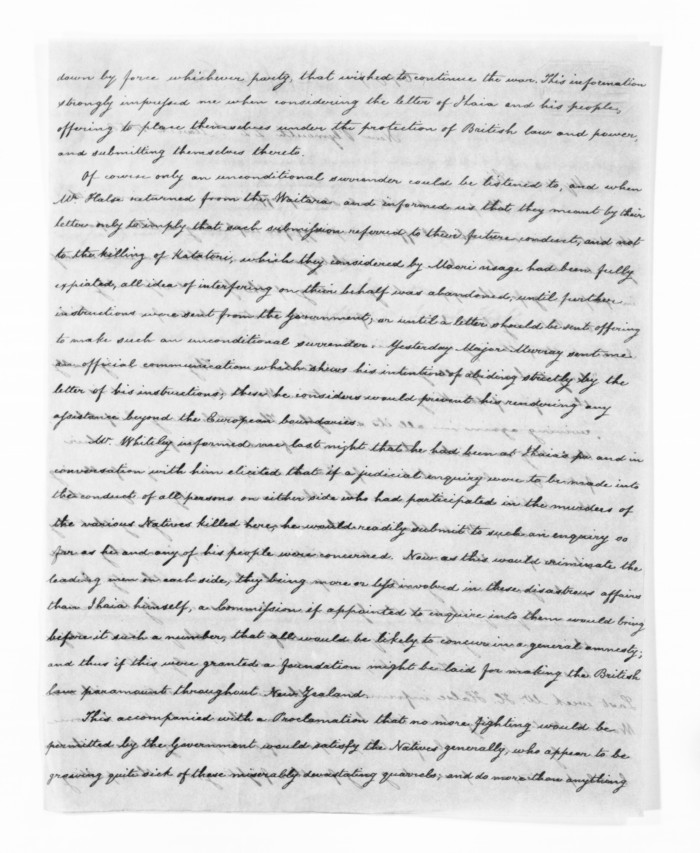 down by force whichever party, that wished to continue the war. This information
strongly impressed me when considering the letter of Ihaia and his people,
offering to place themselves under the protection of British law and power,
and submitting themselves thereto.
Of course only an unconditional surrender could be listened to, and when
Mr. Halse returned from the Waitara and informed us that they meant by their
letter only to imply that such submission referred to their future conduct, and not
to the killing of Katatori, which they considered by Maori usage had been fully
expiated, all idea of interfering on their behalf was abandoned, until further
instructions were sent from the Government, or until a letter should be sent offering
to make such an unconditional surrender. Yesterday Major Murray sent me
an official communication which shews his intention of abiding strictly by the
letter of his instructions, these he considers would prevent his rendering any
assistance beyond the European boundaries.
Mr. Whitely informed me last night that he had been at Ihaia's pa and in
conversation with him elicited that if a judicial enquiry were to be made into
the conduct of all persons on either side who had participated in the murders of
the various Natives killed here, he would readily submit to such an enquiry so
far as he and any of his people were concerned. Now as this would criminate the
leading men on each side, they being more or less involved in these disastrous affairs
than Ihaia himself, a Commission if appointed to enquire into them would bring
before it such a number, that all would be likely to concur in a general amnesty;
and thus if this were granted a foundation might be laid for making the British
law paramount throughout New Zealand.
This accompanied with a Proclamation that no more fighting would be
permitted by the Government would satisfy the Natives generally, who appear to be
growing quite sick of these miserably devastating quarrels; and do more than anything